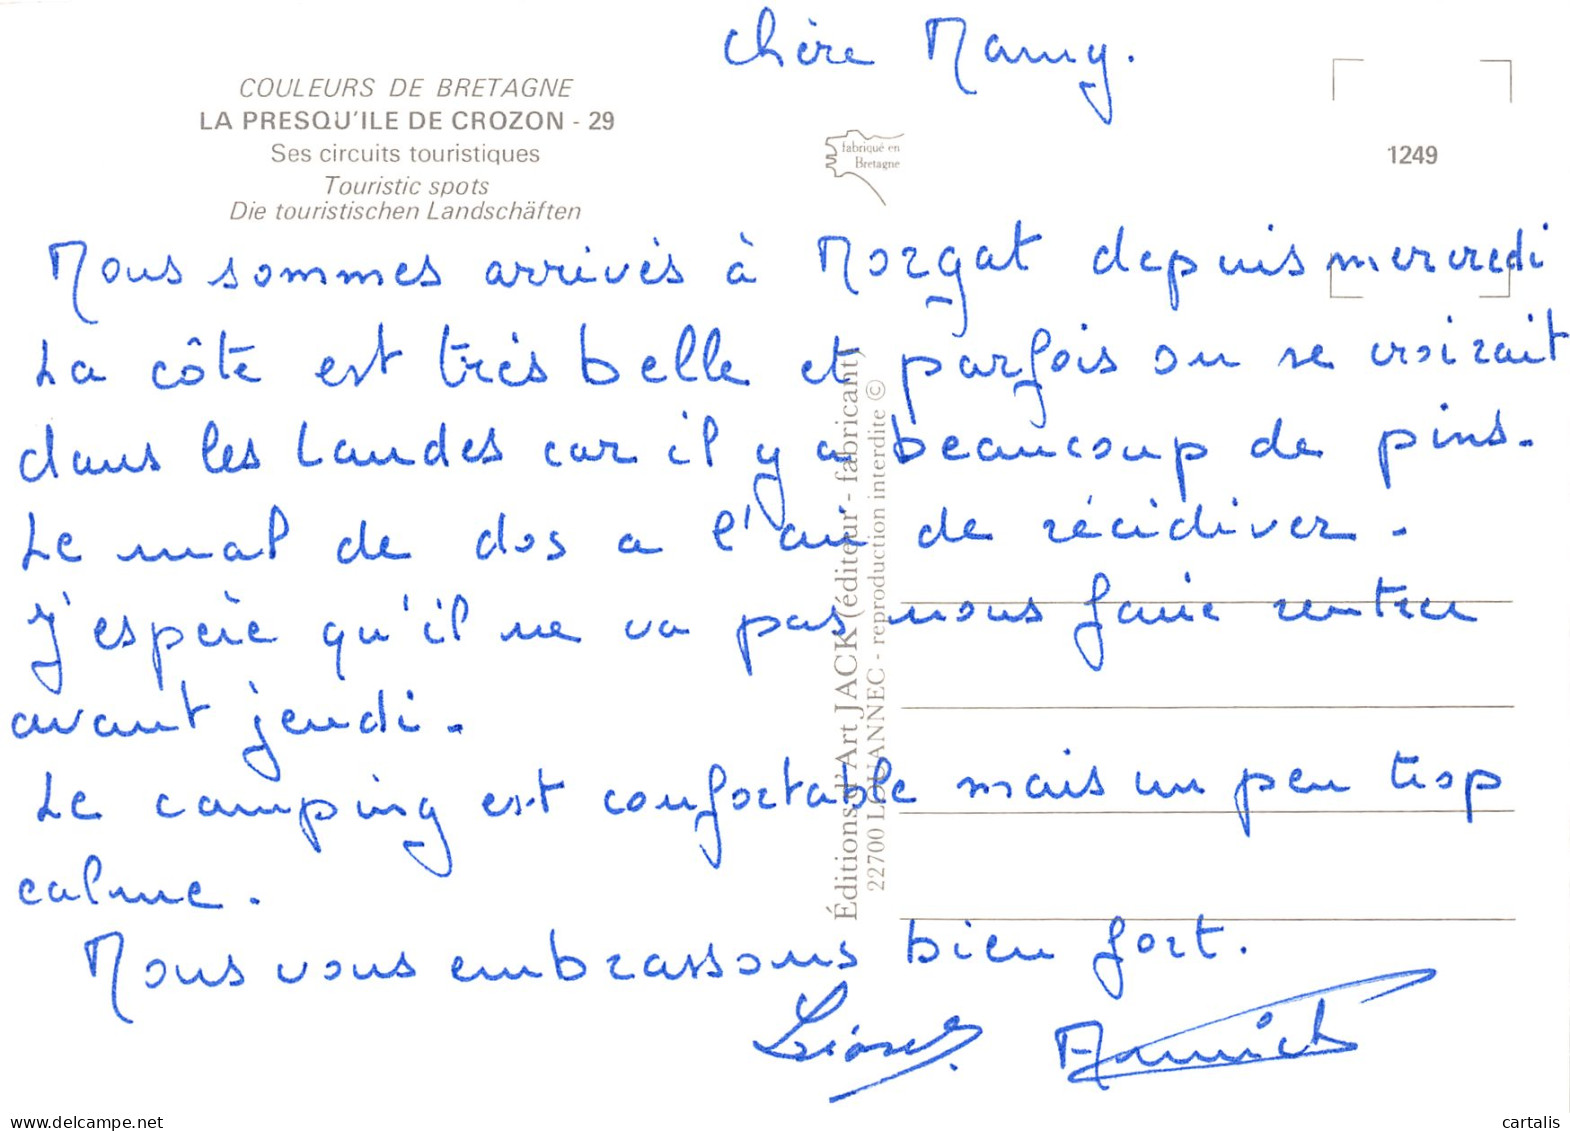 Chère Mamy.
COULEURS DE BRETAGNE
LA PRESQU'ILE DE CROZON - 29
Ses circuits touristiques
Touristic spots
Die touristischen Landschäften
fabriqué en
Bretagne
1249
Nous sommes arrivés à Morgat depuis mercredi
La côte est très belle et parfois on se croirait
dans les Landes car il y a beaucoup de pins.
Le mal de dos a l'air de récidiver.
J'espère qu'il ne va pas nous faire rentrer
avant jeudi.
Le camping est confortable mais un peu trop
calme.
Nous vous embrassons bien fort.
Lionel Annick
Éditions d'Art JACK (éditeur - fabricant)
22700 LOUANNEC - reproduction interdite ©
cartalis